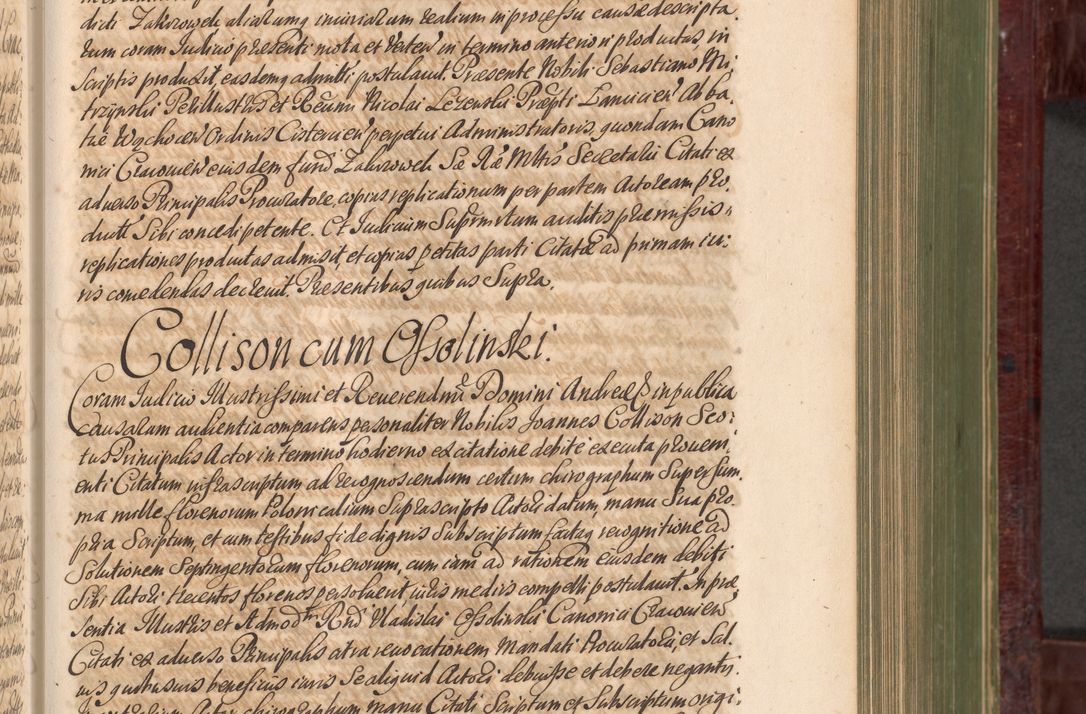 dicti Zakrzowek aliarumq iniuriarum realium in processu causae descripta
rum coram Iudicio praesenti mota et vertens in termino anteriori productas, in
scriptis produxit, easdemq admitti postulauit. Praesente Nobili Sebastiano Mi,
trzynski Perillustris et Rēumi Nicolai Lezenski Praepti Lancicien Abba,
tiae Wąchocen Ordinis Cistercien perpetui Administratoris, quondam Cano
nici Cracouien eiusdem fundi Zakrzowek Sae Rae Mttis Secretarii Citati ex
aduerso Principalis Procuratore, copias replicationum per partem Actoream pro,
ductt Sibi concedi petente. Et Iudicium Suprmrtum auditis praemissis,,
replicationes productas admisit, et copias petitas parti Citatae ad primam iu:
ris comedendas decreuit. Praesentibus quibus Supra.
Collison cum Ossolinski.
Coram Iudicio Illustrissimi et Reuerendmi Domini Andreae & in publica
Causarum audientia comparens personaliter Nobilis Joannes Collison Sco:
tus Principalis Actor in termino hodierno ex citatione debite executa proueni,
enti Citatum infrascriptum ad recognoscendum certum chirographum Super sum,
ma mille florenorum Polonicalium Suprascripto Actori datum, manu Sua pro,
pria Scriptum, et cum testibus fide dignis Subscriptum factaq recognitione ad
Solutionem Septingentorum florenorum, cum iam ad rationem eiusdem debiti
Sibi Actori trecentos florenos persoluerit iuris mediis compelli postulauit. In prae
sentia Illustris et Admodt Rndi Vladislai Ossolinski Canonici Cracouien
Citati ex aduerso Principalis citra reuocationem Mandati Procuratorii, et Sal.
uis quibusuis beneficiis iuris Se aliquid Actori debuisse et debere negantis.
chirographum manu Citati Scriptum et Subscriptum origi: